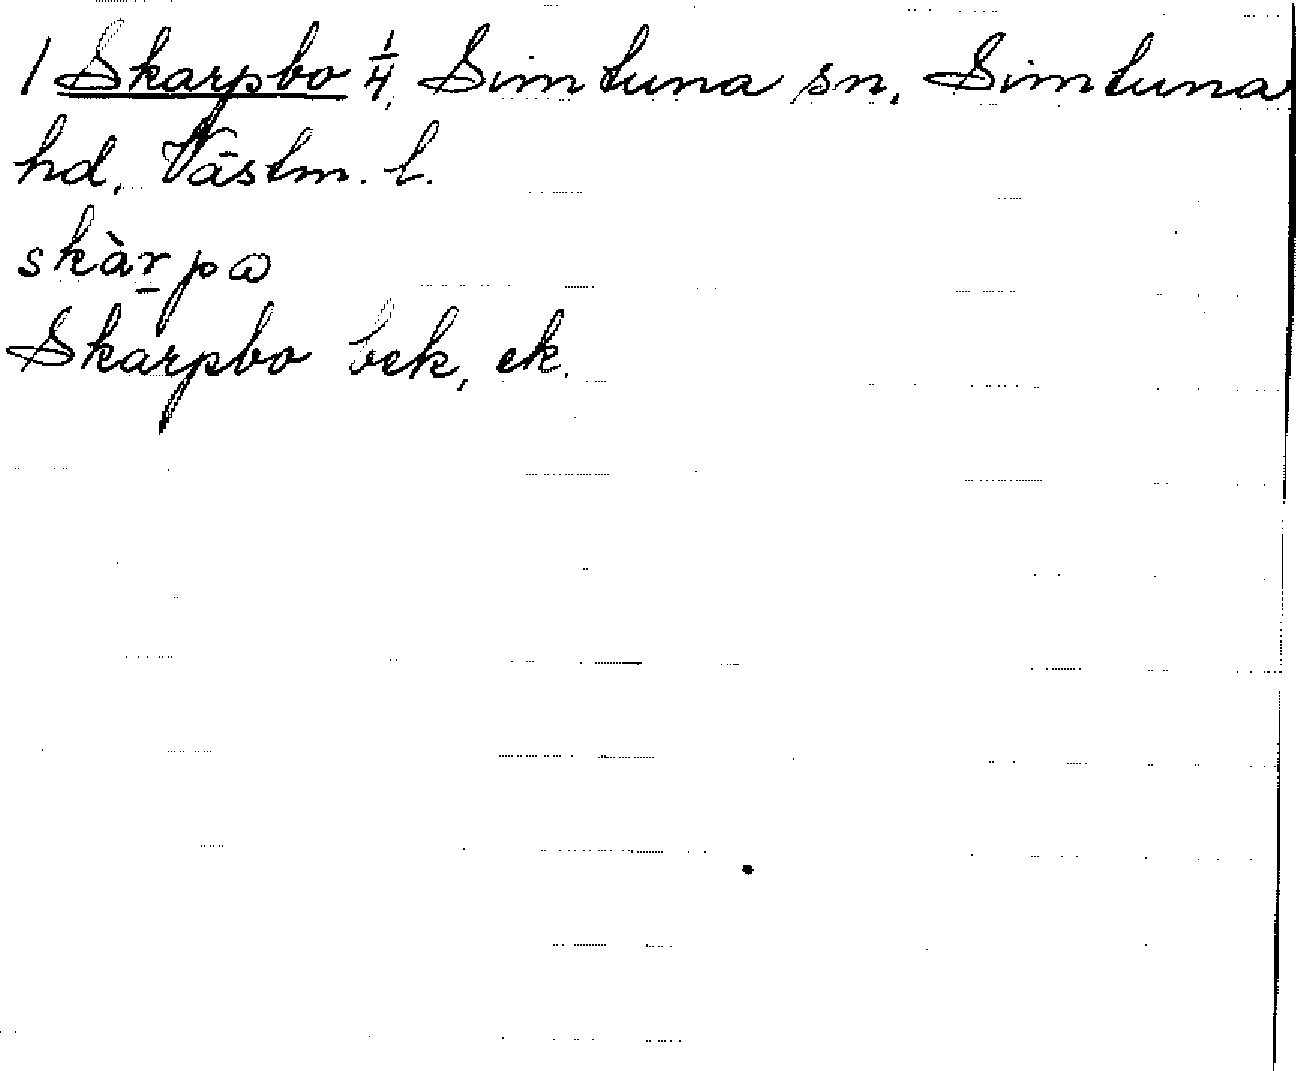 1 Skarpbo 1/4, Simtuna sn, Simtuna
hd, Västm. l.
skàr̲pω
Skarpbo bek, ek.